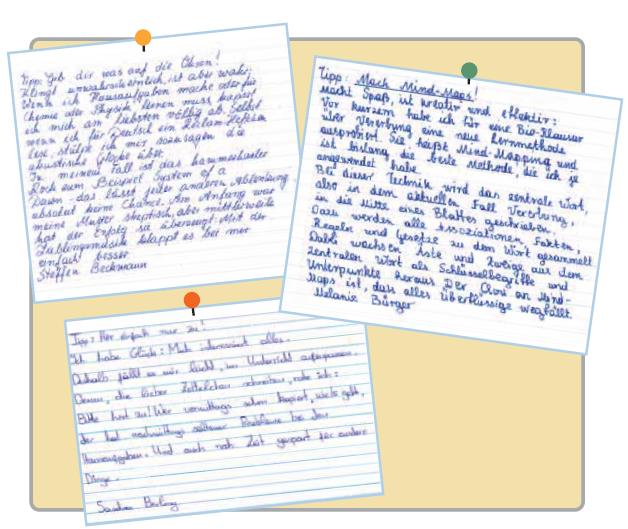 Tipp: Gib dir was auf die Ohren!
Klingt unwahrscheinlich, ist aber wahr:
Wenn ich Hausaufgaben mache oder für
Chemie oder Physik lernen muss, kapsel
ich mich am liebsten völlig ab. Selbst
wenn ich für Deutsch ein Reclam-Heftchen
lese, stülpe ich mir sozusagen die
akustische Glocke über.
In meinem Fall ist das hammerharter
Rock zum Beispiel System of a
Down - das lässt jeder anderen Ablenkung
absolut keine Chance. Am Anfang war
meine Mutter skeptisch, aber mittlerweile
hat der Erfolg sie überzeugt: Mit der
Lieblingsmusik klappt es bei mir
einfach besser.
Steffen Beckmann
Tipp: Mach Mind-Maps!
Macht Spaß, ist kreativ und effektiv:
Vor kurzem habe ich für eine Bio-Klausur
über Vererbung eine neue Lernmethode
ausprobiert. Sie heißt Mind-Mapping und
ist bislang die beste Methode, die ich je
angewendet habe.
Bei dieser Technik wird das zentrale Wort,
also in dem aktuellen Fall Vererbung,
in die Mitte eines Blattes geschrieben.
Dazu werden alle Assoziationen, Fakten,
Regeln und Gesetze zu dem Wort gesammelt
Dabei wachsen Äste und Zweige aus dem
zentralen Wort als Schlüsselbegriffe und
Unterpunkte heraus. Der Clou an Mind-
Maps ist, dass alles Überflüssige wegfällt.
Melanie Bürger
Tipp: Hör einfach nur zu!
Ich habe Glück: Mich interessiert alles.
Deshalb fällt es mir leicht, im Unterricht aufzupassen.
Denen, die lieber Zettelchen schreiben, rate ich:
Bitte hört zu! Wer vormittags schon kapiert, wie's geht,
der hat nachmittags seltener Probleme bei den
Hausaufgaben. Und auch noch Zeit gespart für andere
Dinge.
Sandra